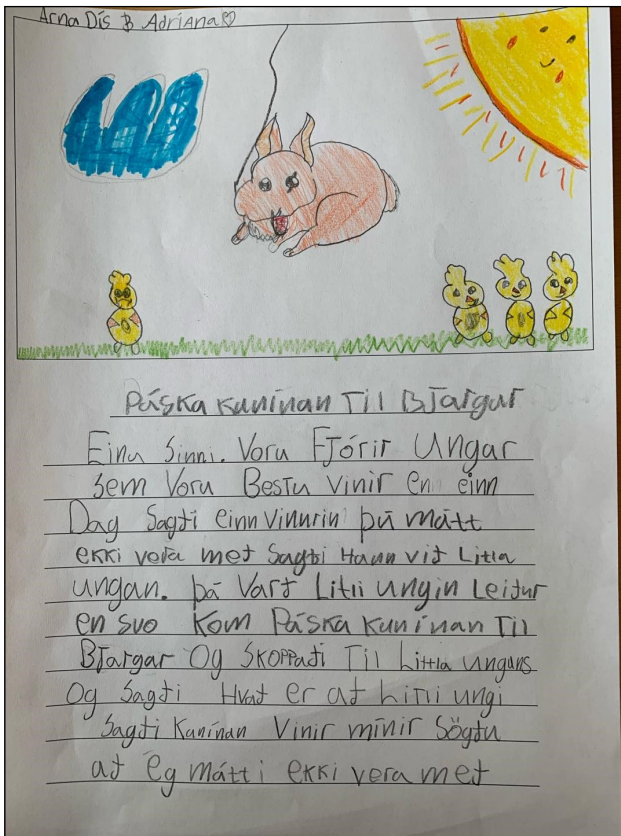 Arna Dís & Adríana♡
Páska kanínan Til BJargar
Einu Sinni. Voru FJórir Ungar
Sem Voru Bestu Vinir en einn
Dag Sagði einn vinurin þú mátt
ekki vera með Sagði Hann við Litla
ungan. þá Varð Litli ungin Leiður
en svo kom Páska kanínan Til
BJargar Og SKoppaði Til Littla ungans
Og Sagði Hvað er að Litli ungi
Sagði Kanínan Vinir mínir Sögðu
að ég mátti ekki vera með